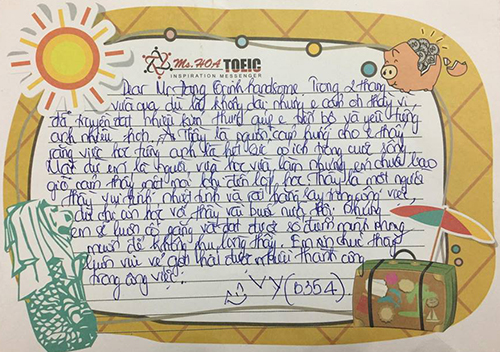 Ms.HOA TOEIC
INSPIRATION MESSENGER
Dear Mr Đặng Trinh handsome. Trong 2 tháng
vừa qua dù là không dài nhưng e cảm ơn thầy vì
đã truyền đạt nhiều kiến thức giúp e tiến bộ và yêu tiếng
anh nhiều hơn. Thầy là người cảm hứng cho e thấy
rằng việc học tiếng anh là hết sức có ích trong cuộc sống.
Mặc dù em là người vừa học vừa làm nhưng em chưa bao
giờ cảm thấy mệt mỏi khi đến lớp học. Thầy là một người
thầy vui tính, nhiệt tình và rất hăng say trong công việc,
dù chỉ còn học với thầy vài buổi nữa thôi. Nhưng
em sẽ luôn cố gắng và đạt được số điểm mình mong
muốn để không phụ lòng thầy. Em xin chúc thầy
luôn vui vẻ gặt hái được nhiều thành công
trong công việc!
VY (0354)